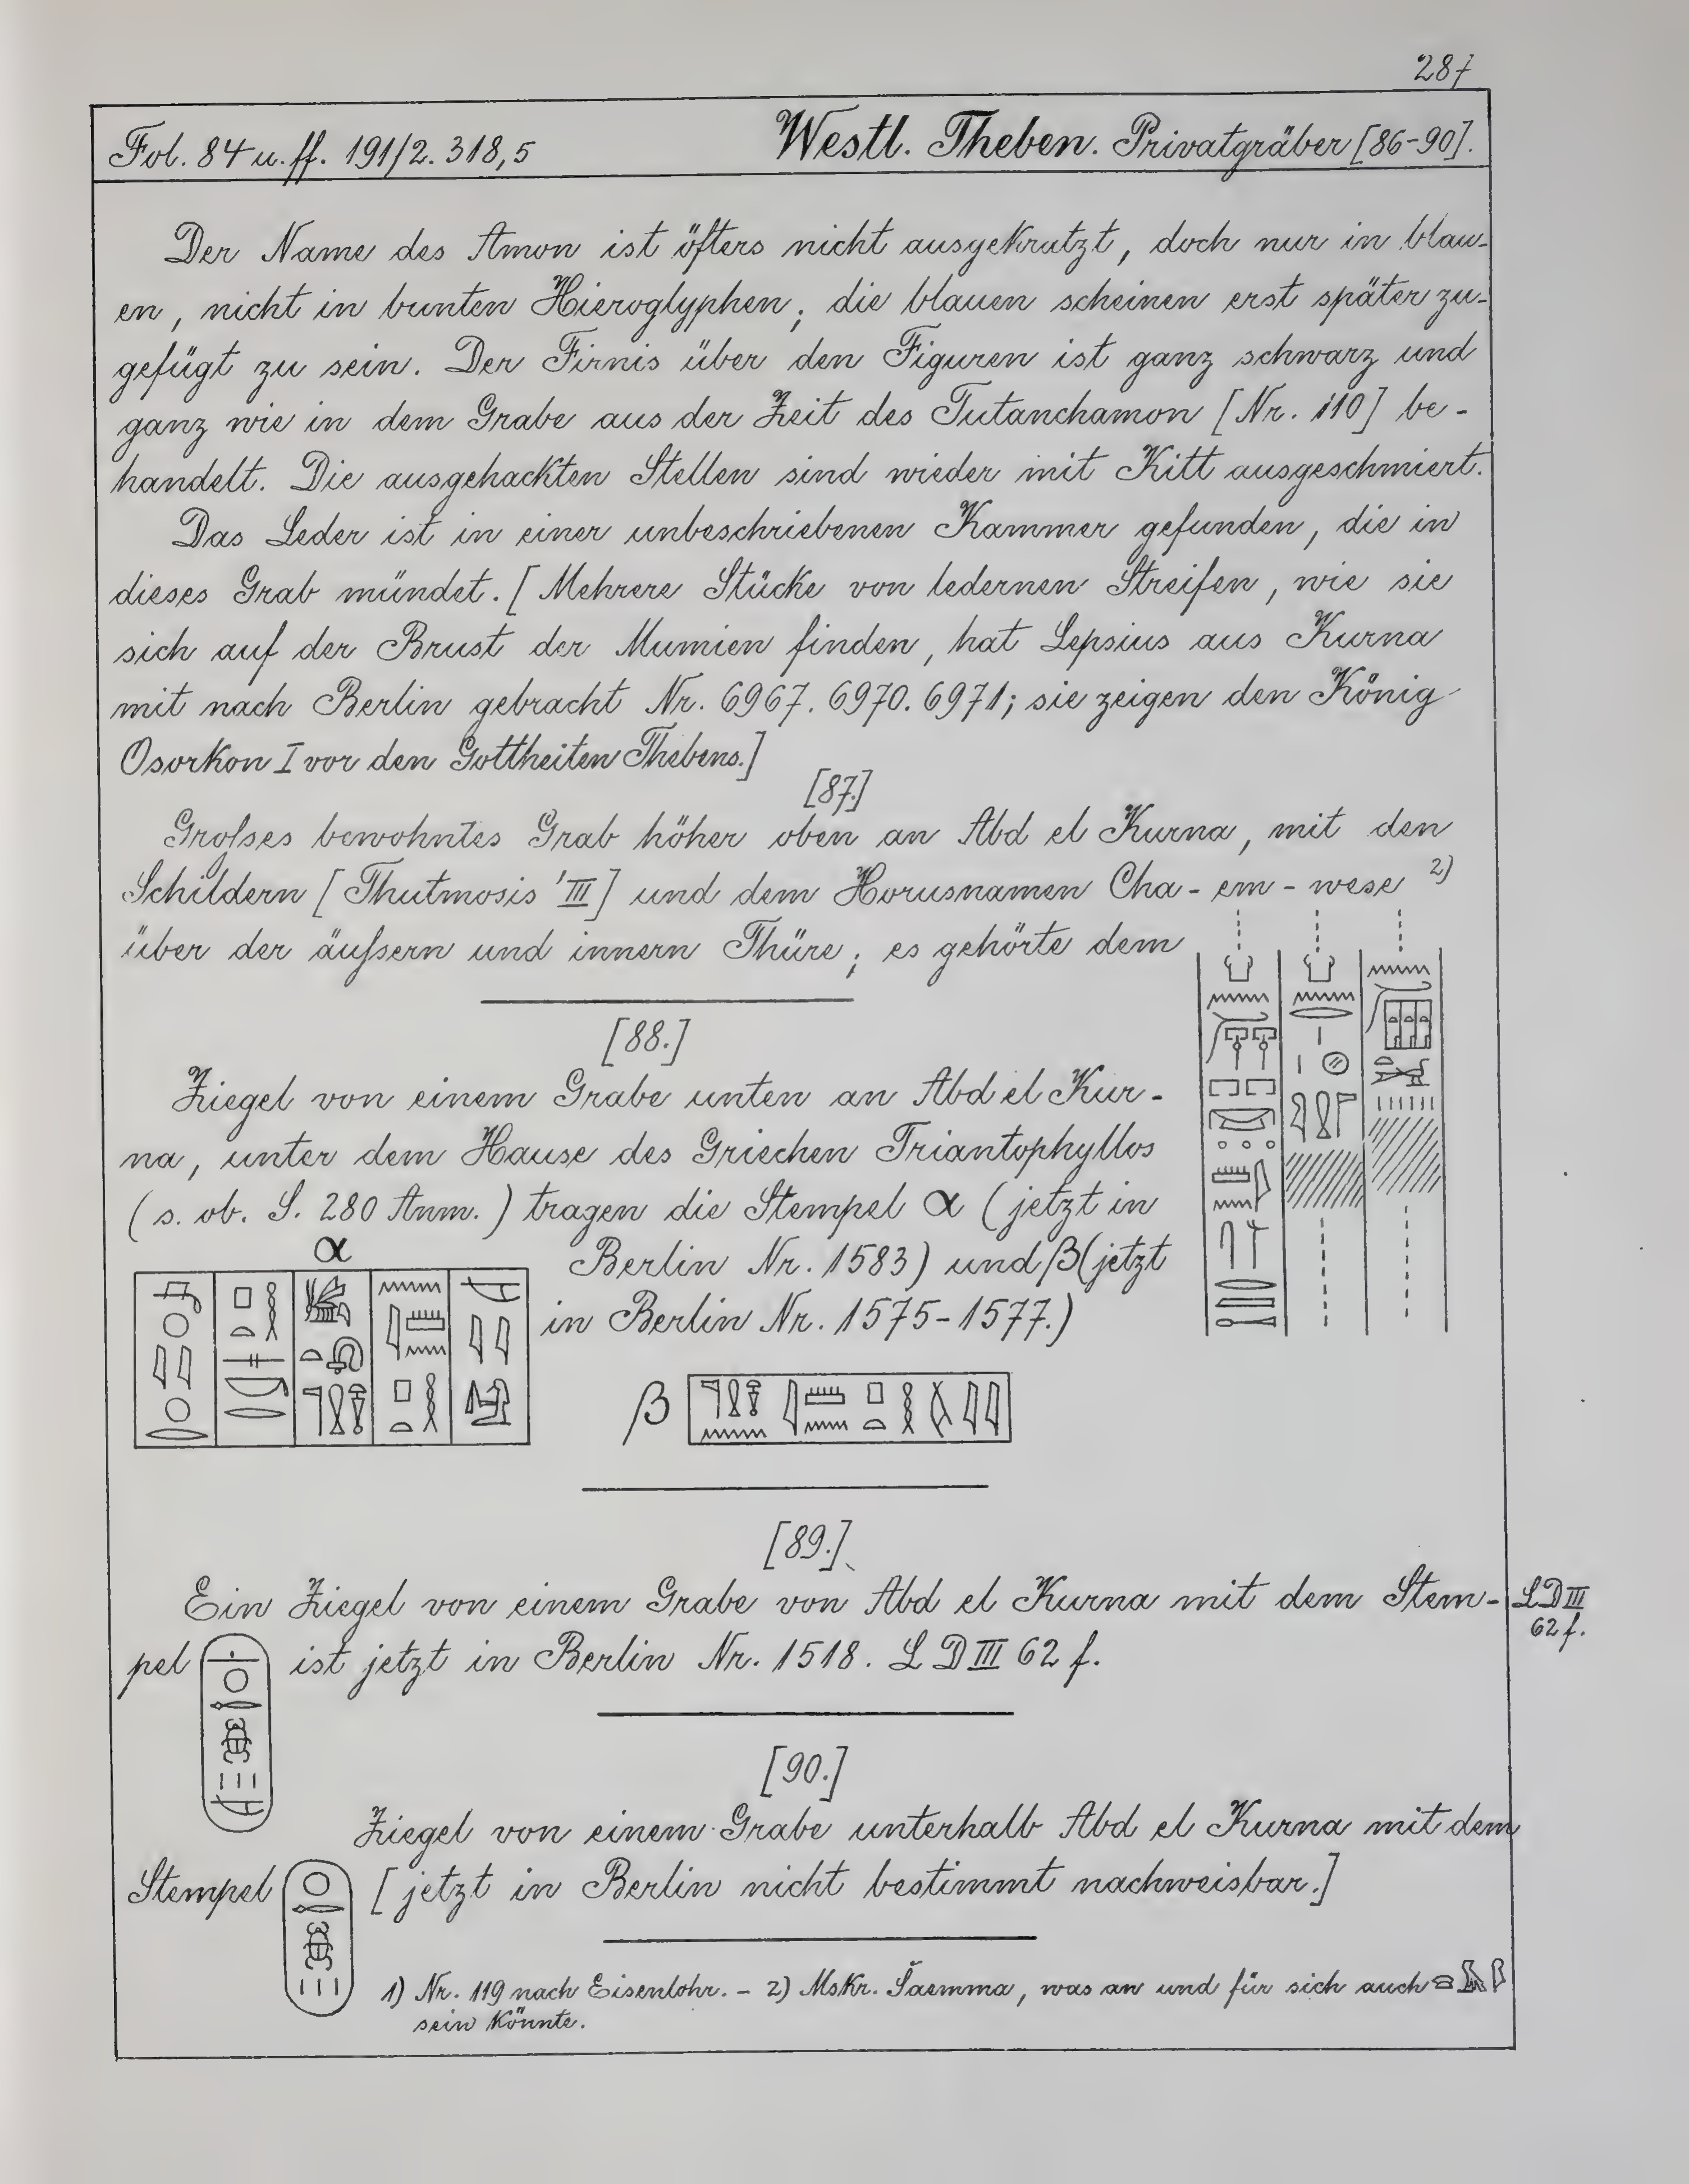 287
Fol. 84 u. ff. 191/2. 318,5
Westl. Theben. Privatgräber [86-90].
Der Name des Amon ist öfters nicht ausgekratzt, doch nur in blau-
en, nicht in bunten Hieroglyphen; die blauen scheinen erst später zu-
gefügt zu sein. Der Firnis über den Figuren ist ganz schwarz und
ganz wie in dem Grabe aus der Zeit des Tutanchamon [Nr. 110] be-
handelt. Die ausgehackten Stellen sind wieder mit Kitt ausgeschmiert.
Das Leder ist in einer unbeschriebenen Kammer gefunden, die in
dieses Grab mündet. [Mehrere Stücke von ledernen Streifen, wie sie
sich auf der Brust der Mumien finden, hat Lepsius aus Kurna
mit nach Berlin gebracht Nr. 6967. 6970. 6971; sie zeigen den König
Osorkon I vor den Gottheiten Thebens.]
[87.]
Großes bewohntes Grab höher oben an Abd el Kurna, mit den
Schildern [Thutmosis' III] und dem Horusnamen Cha-em-wese 2)
über der äußern und innern Thüre; es gehörte dem
[88.]
Ziegel von einem Grabe unten an Abd el Kur-
na, unter dem Hause des Griechen Triantophyllos
(s. ob. S. 280 Anm.) tragen die Stempel α (jetzt in
α
Berlin Nr. 1583) und β (jetzt
in Berlin Nr. 1575-1577.)
β
[89.]
Ein Ziegel von einem Grabe von Abd el Kurna mit dem Stem-
LD III
62 f.
pel ist jetzt in Berlin Nr. 1518. LD III 62 f.
[90.]
Ziegel von einem Grabe unterhalb Abd el Kurna mit dem
Stempel [jetzt in Berlin nicht bestimmt nachweisbar.]
1) Nr. 119 nach Eisenlohr. - 2) Mskr. Šaemma, was an und für sich auch
sein könnte.